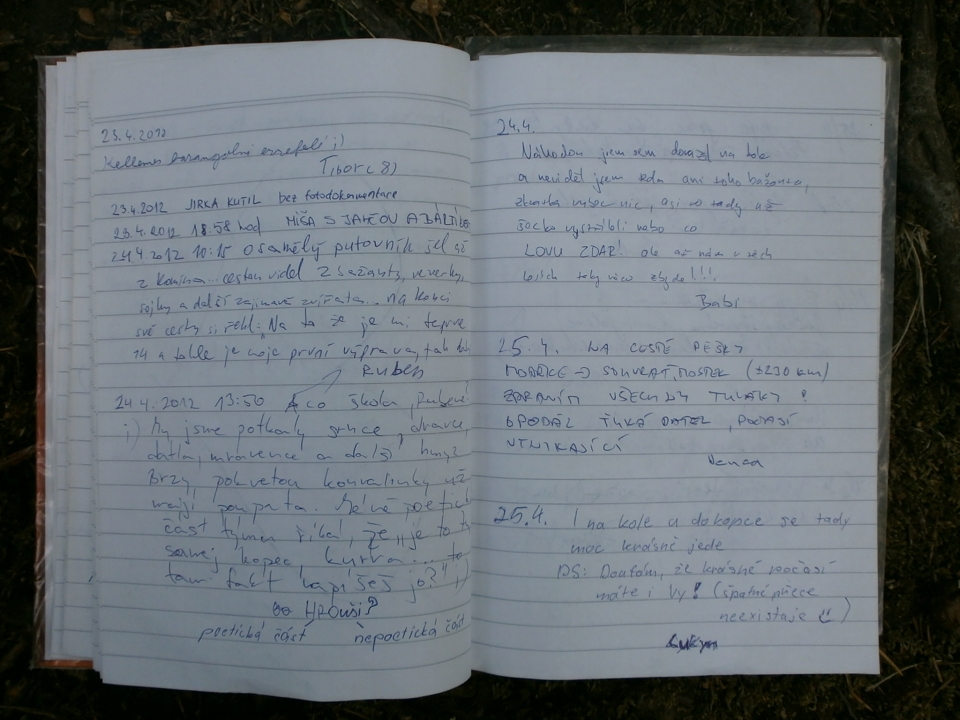 23.4.2012
Kellemes barangolni errefelé ;)
Tibor (8)
23.4.2012 JIRKA KUTIL bez fotodokumentace
23.4.2012 18:58 hod MÍŠA S JAHEOU A
24.4.2012 10:15 Osamělý putovník šel až
z Komína... cestou viděl 2 bažanty, veverky,
sojky a další zajímavá zvířata... na konci
své cesty si řekl: Na to že je mi teprve
14 a tohle je moje první výprava, tak
Ruben
24.4.2012 13:50 A co škola, Rubene
;) My jsme potkaly srnce, dravce,
datla, mravence a další hmyz.
Brzy pokvetou konvalinky, už
mají poupata. Méně poetická
část týmu říká, že "je to
samej kopec, kurva... to
tam fakt napíšeš jo?" ;)
HROUŠI?
poetická část nepoetická část
24.4.
Náhodou jsem sem dorazil na kole
a neviděl jsem teda ani toho bažanta,
zkrátka vůbec nic, asi to tady už
všecko vystříleli nebo co
LOVU ZDAR! ale ať nám v těch
lesích taky něco zbyde!!!
Babi
25.4. NA CESTĚ PĚŠKY
MODŘICE → SOUVRAŤ, MOSTEK (±230 km)
ZDRAVÍM VŠECHNY TULÁKY!
OPODÁL ŤUKÁ DATEL, POČASÍ
VYNIKAJÍCÍ
Venca
25.4. I na kole a dokopce se tady
moc krásně jede
PS: Doufám, že krásné počasí
máte i Vy! (špatné přece
neexistuje)